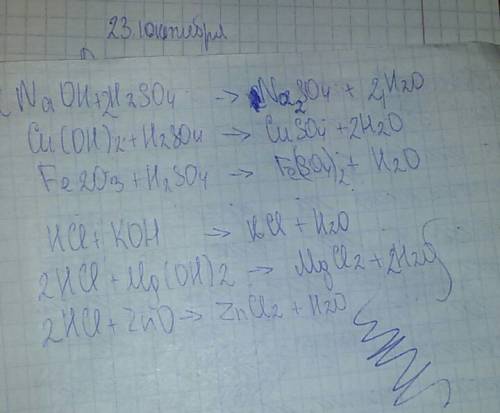 23 октября
2 NaOH + 2H2SO4 → Na2SO4 + 2H2O
Cu(OH)2 + H2SO4 → CuSO4 + 2H2O
Fe2O3 + H2SO4 → Fe(SO4)2 + H2O
HCl + KOH → KCl + H2O
2HCl + Mg(OH)2 → MgCl2 + 2H2O
2HCl + ZnO → ZnCl2 + H2O